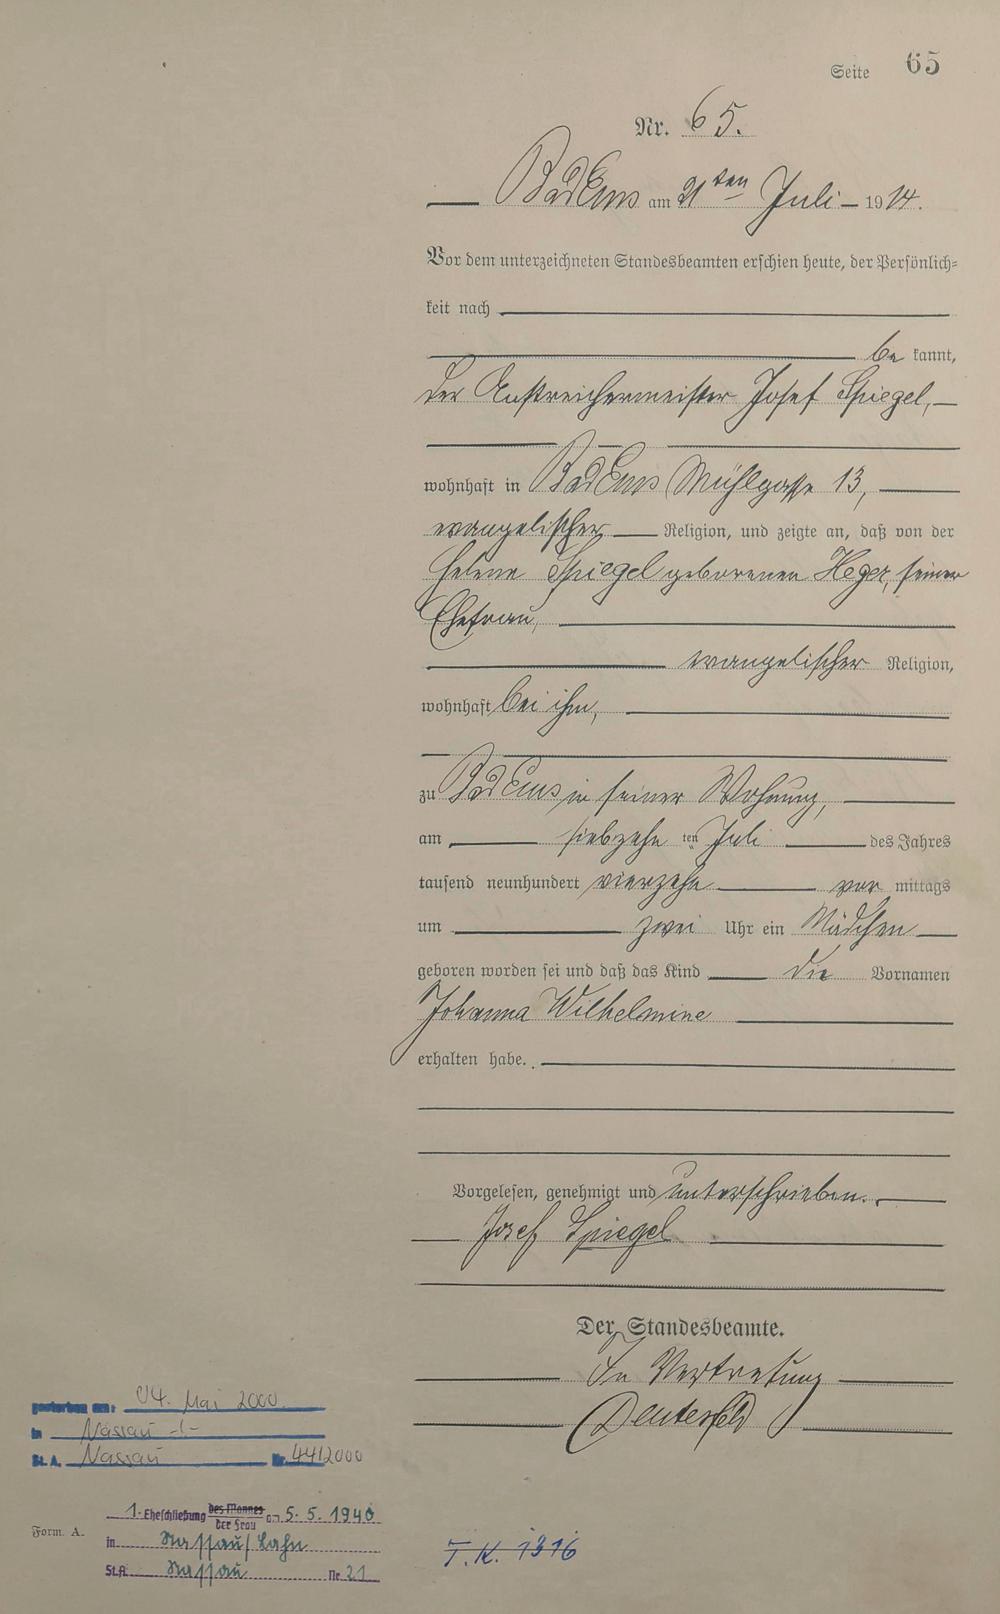 Seite 65
Nr. 65.
Bad Ems am 21ten Juli 1914.
Vor dem unterzeichneten Standesbeamten erschien heute, der Persönlich-
keit nach
be kannt,
der Anstreichermeister Josef Spiegel,
wohnhaft in Bad Ems Mühlgasse 13,
evangelischer Religion, und zeigte an, daß von der
Helene Spiegel geborenen Heger, seiner
Ehefrau,
evangelischer Religion,
wohnhaft bei ihm,
zu Bad Ems in seiner Wohnung,
am siebzehn ten Juli des Jahres
tausend neunhundert vierzehn vor mittags
um zwei Uhr ein Mädchen
geboren worden sei und daß das Kind die Vornamen
Johanna Wilhelmine
erhalten habe.
Vorgelesen, genehmigt und unterschrieben.
Josef Spiegel
Der Standesbeamte.
In Vertretung
gestorben am: 04. Mai 2000
in Nassau -/-
St. A. Nassau Nr. 44/2000
1. Eheschließung des Mannes
der Frau am 5.5.1940
in Nassau/Lahn
St.A. Nassau Nr. 21
Form. A.
T.K. 1316